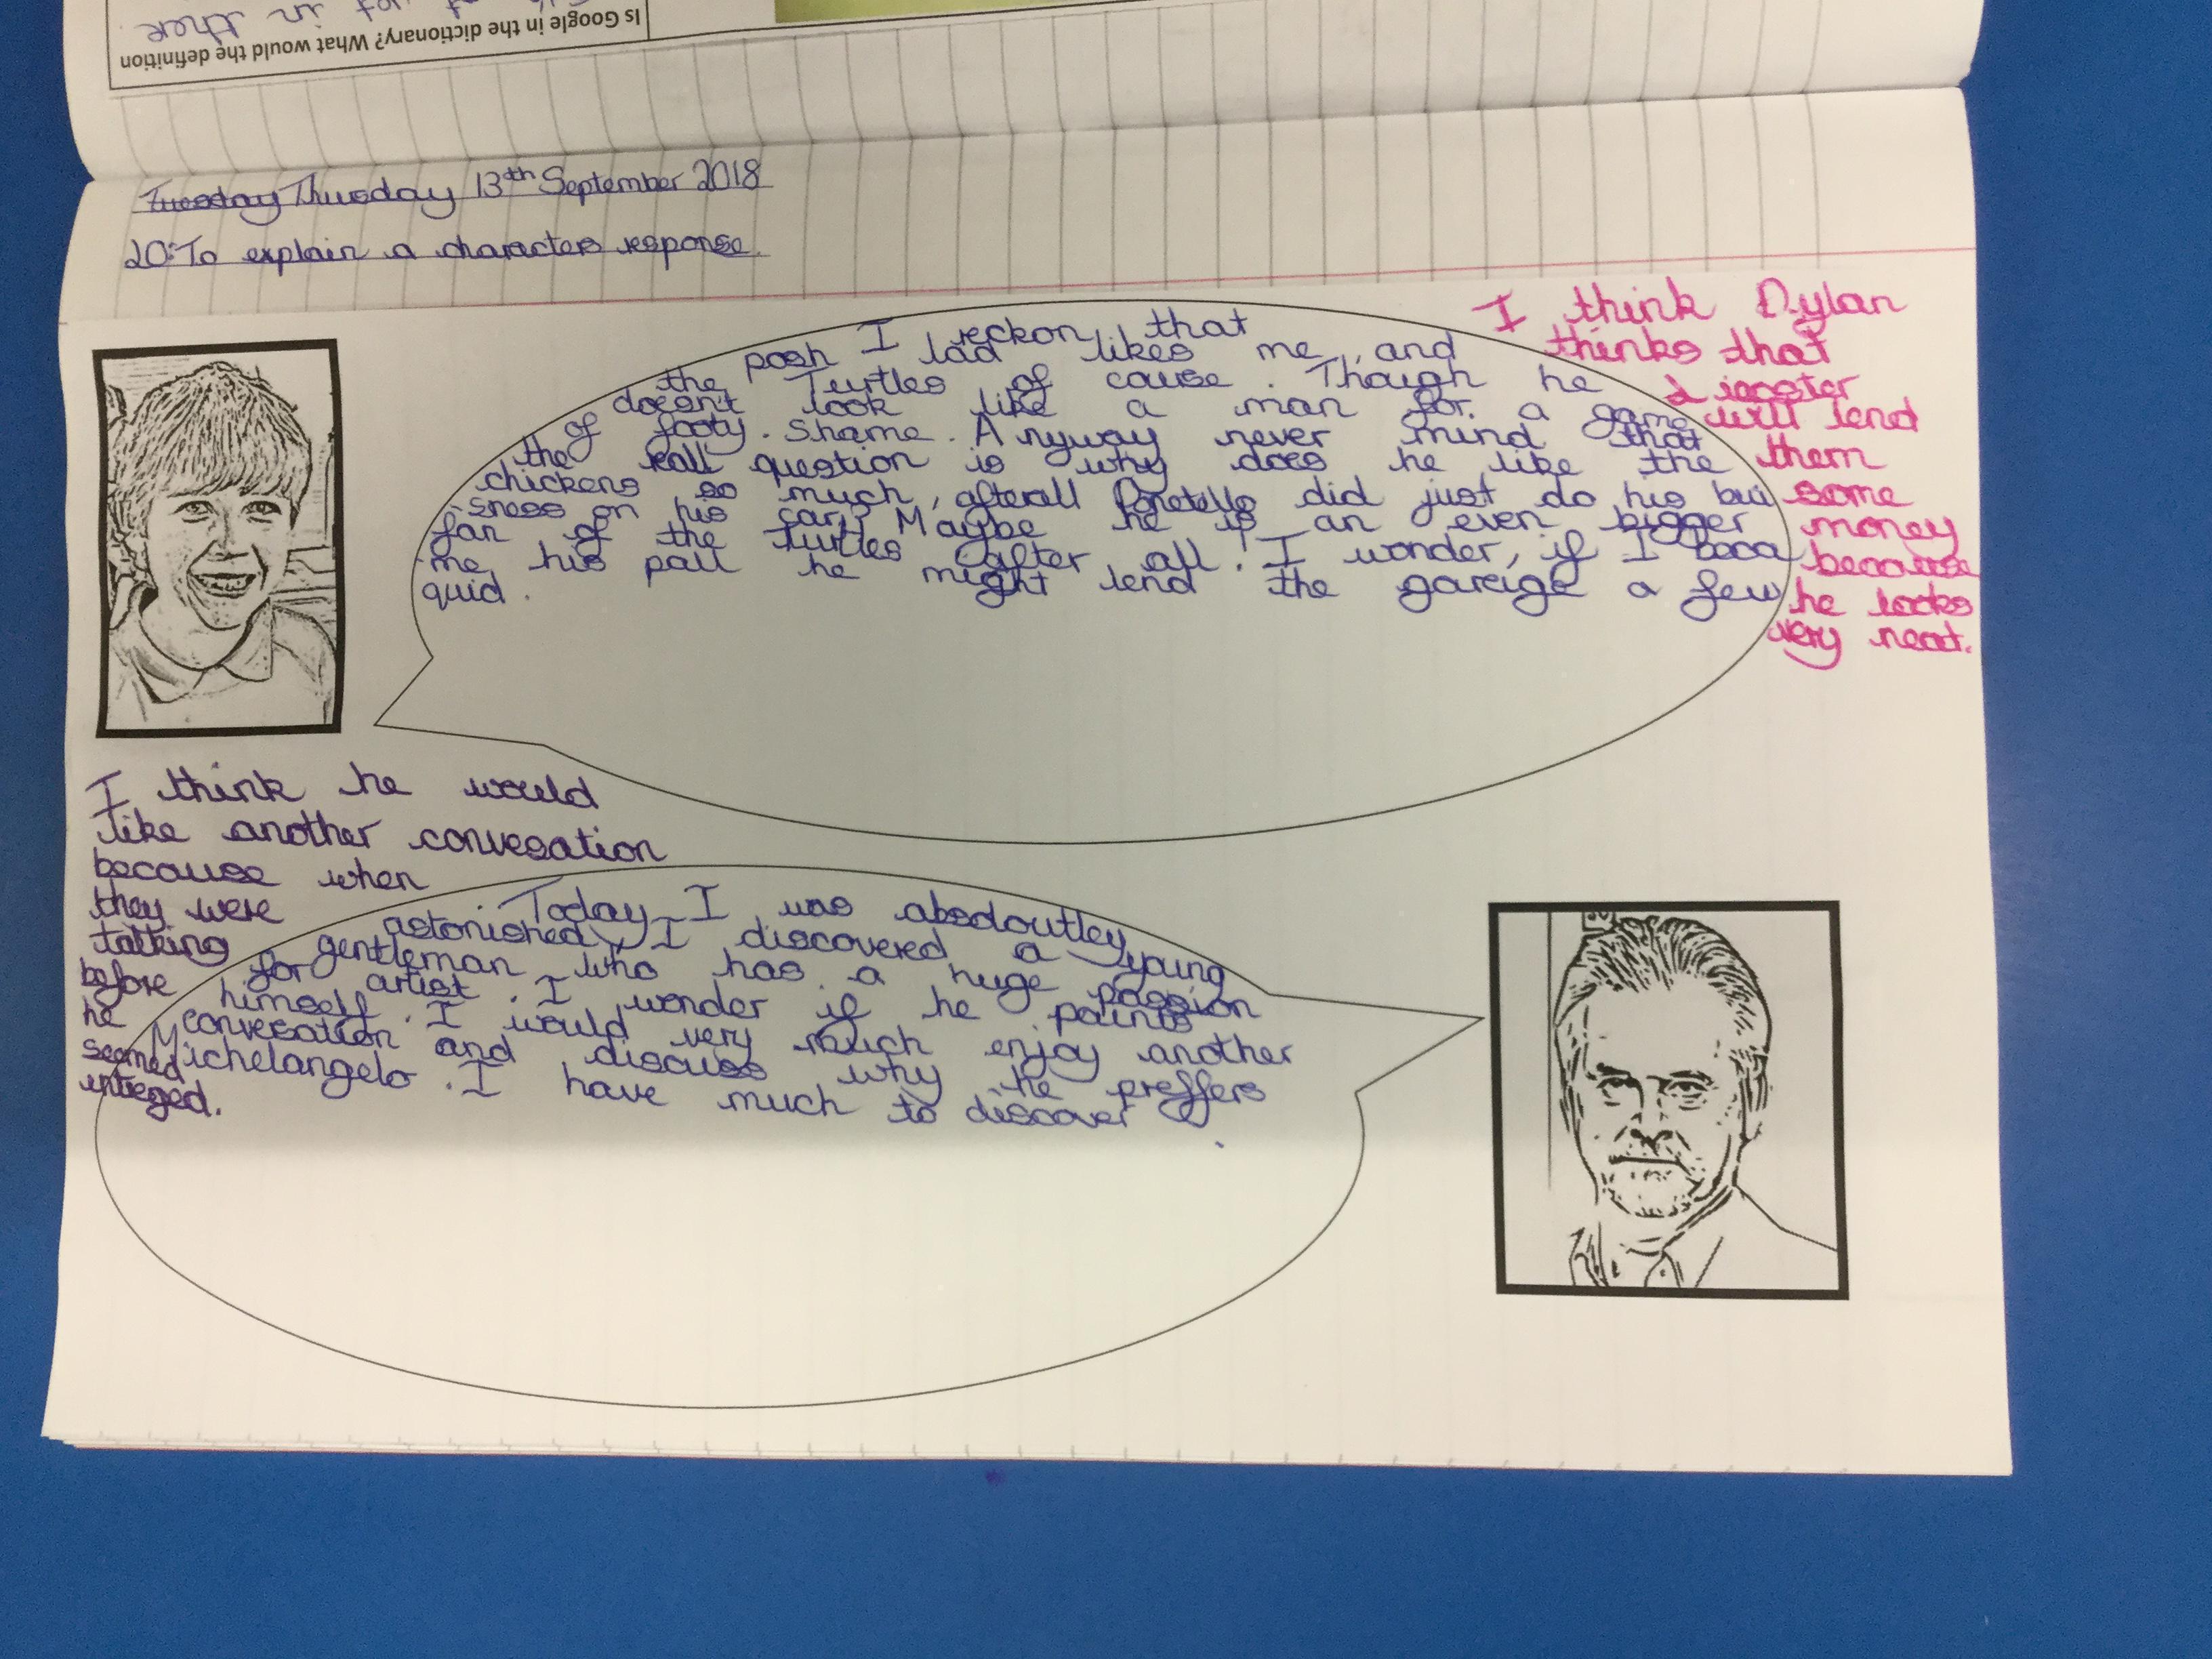 Is Google in the dictionary? What would the definition
in there
Tuesday Thusday 13th September 2018
LO: To explain a characters response.
I reckon that
posh lad likes me, and
the Turtles of cause. Though he
doesn't look like a man for a game
of footy. Shame. Anyway never mind that
the reall question is why does he like the
chickens so much, afterall Donetello did just do his bui
-sness on his car! Maybe he is an even bigger
fan of the Turtles after all! I wonder, if I beca
-me his pall he might lend the garage a few
quid.
I think Dylan
thinks that
Lisester
will lend
them
some
money
because
he looks
very neat.
I think he would
like another convesation
because when
they were
talking
before
he
seemed
intreged.
Today I was absdoutley
astonished, I discovered a young
gentleman who has a huge passion
for artist. I wonder if he paints
himself. I would very much enjoy another
convesation and discuss why he preffers
Michelangelo. I have much to discover.